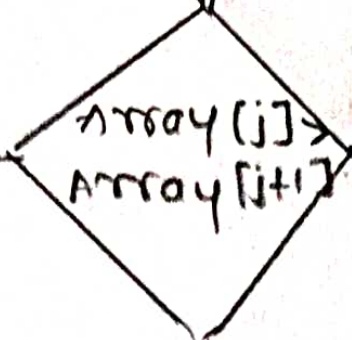 Array[j] >
Array[j+1]